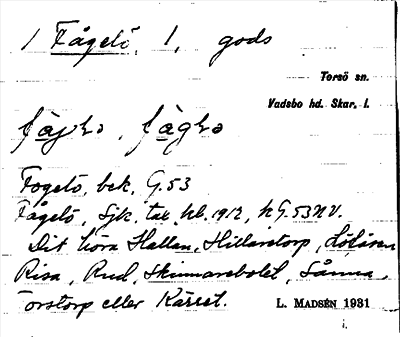 1 Fågelö, 1, gods
Torsö sn.
Vadsbo hd. Skar. l.
Fogelö, bek, G.53
Fågelö, Sjk, tax hb. 1912, hG.53NV.
Dit höra Hallan, Hillarstorp, Lötåsen
Risa, Rud, Skinnarebolet, Sånna,
Torstorp eller Kärret.
L. MADSÉN 1931